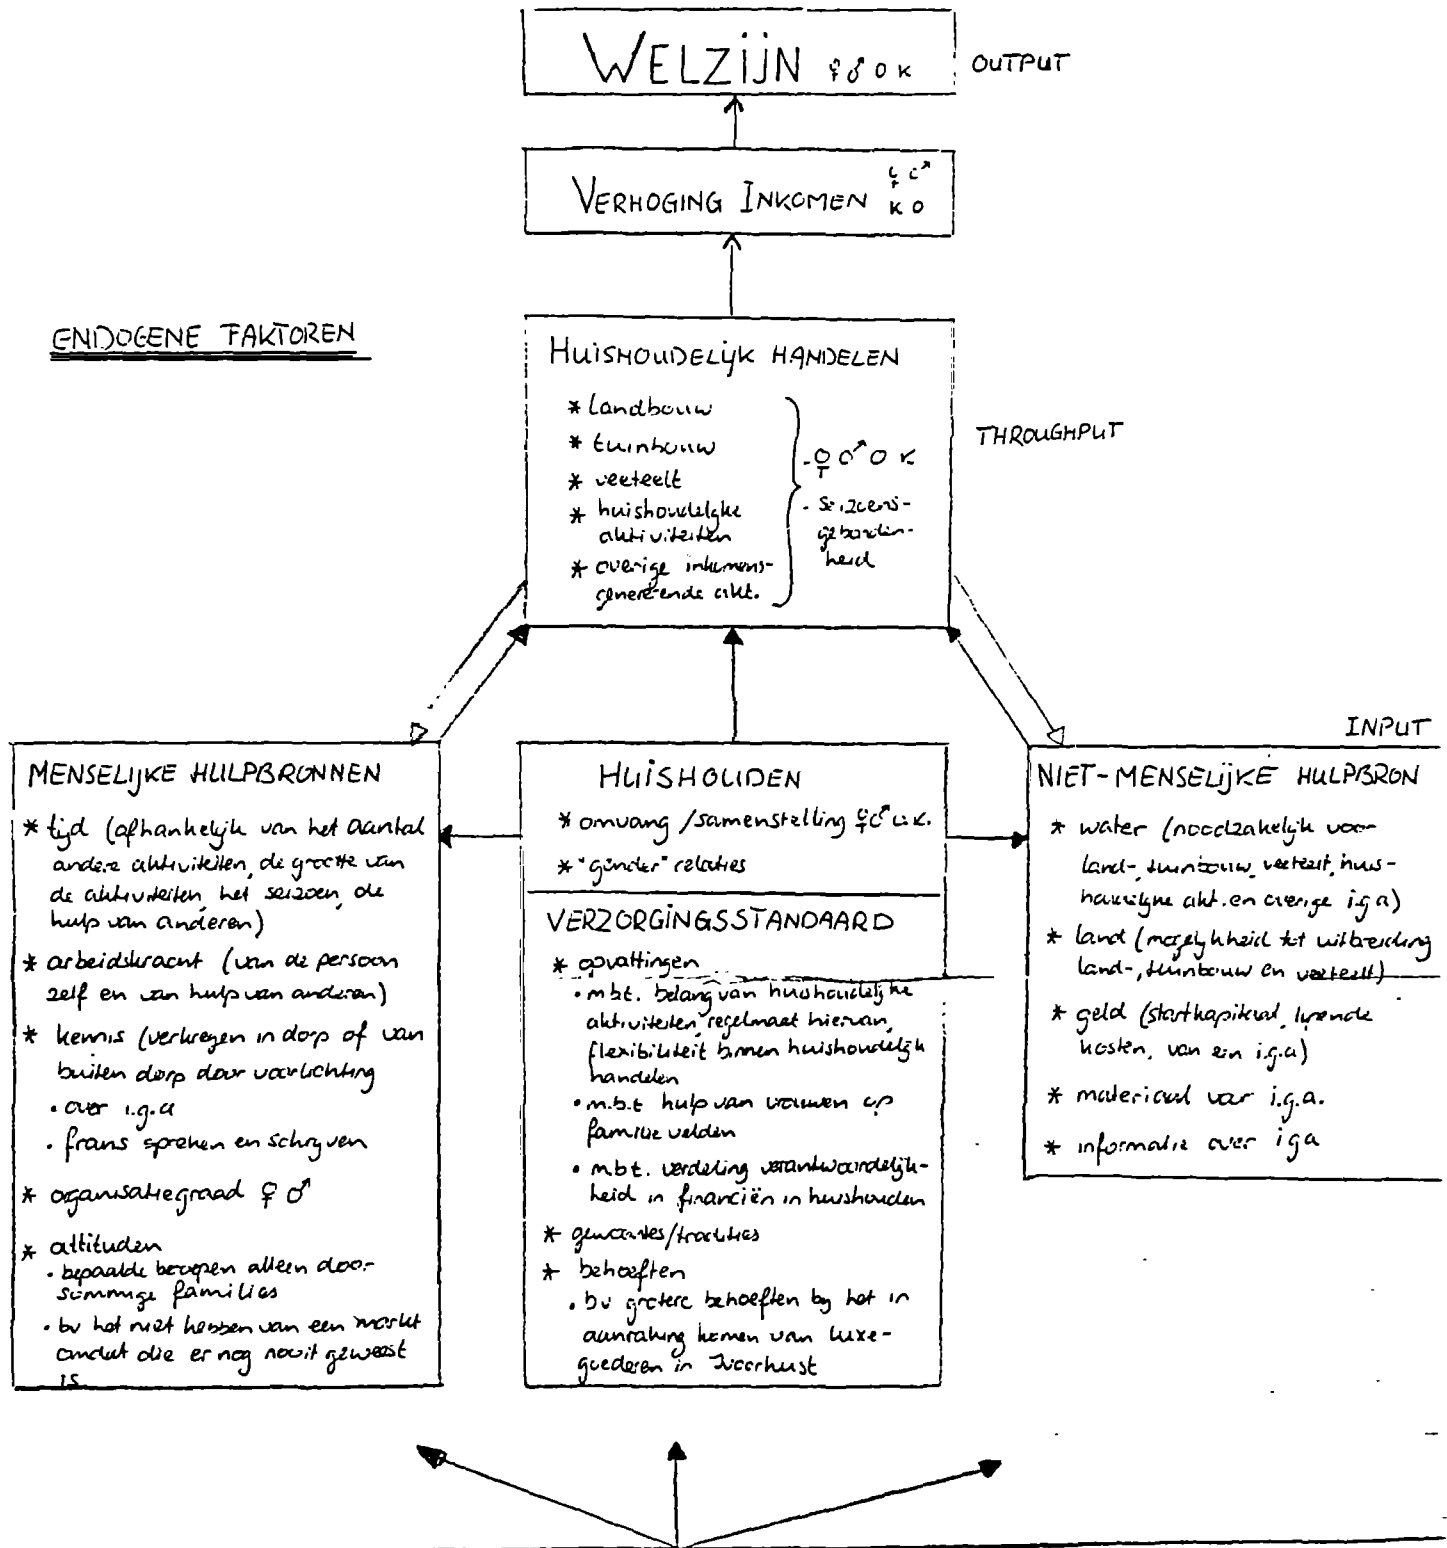 WELZIJN ♀ ♂ O K
OUTPUT
VERHOGING INKOMEN ♀ ♂
K O
ENDOGENE FAKTOREN
HUISHOUDELIJK HANDELEN
* landbouw
* tuinbouw
* veeteelt
* huishoudelijke
aktiviteiten
* overige inkomens-
genererende akt.
- ♀ ♂ O K
- seizoens-
gebonden-
heid
THROUGHPUT
INPUT
MENSELIJKE HULPBRONNEN
* tijd (afhankelijk van het aantal
andere aktiviteiten, de grootte van
de aktiviteiten, het seizoen, de
hulp van anderen)
* arbeidskracht (van de persoon
zelf en van hulp van anderen)
* kennis (verkregen in dorp of van
buiten dorp door voorlichting
• over i.g.a
• frans spreken en schrijven
* organisatiegraad ♀ ♂
* attituden
• bepaalde beroepen alleen door
sommige families
• bv het niet hebben van een markt
omdat die er nog nooit geweest
is.
HUISHOUDEN
* omvang / samenstelling ♀ ♂ O K.
* "gender" relaties
VERZORGINGSSTANDAARD
* opvattingen
• m.b.t. belang van huishoudelijke
aktiviteiten, regelmaat hiervan,
flexibiliteit binnen huishoudelijk
handelen
• m.b.t hulp van vrouwen op
familie velden
• m.b.t. verdeling verantwoordelijk-
heid in financiën in huishouden
* gewoontes/tradities
* behoeften
• bv grotere behoeften bij het in
aanraking komen van luxe-
goederen in Ivoorkust
NIET-MENSELIJKE HULPBRON
* water (noodzakelijk voor
land-, tuinbouw, veeteelt, huis-
houdelijke akt. en overige i.g.a)
* land (mogelijkheid tot uitbreiding
land-, tuinbouw en veeteelt)
* geld (startkapitaal, lopende
kosten, van een i.g.a)
* materiaal voor i.g.a.
* informatie over i.g.a